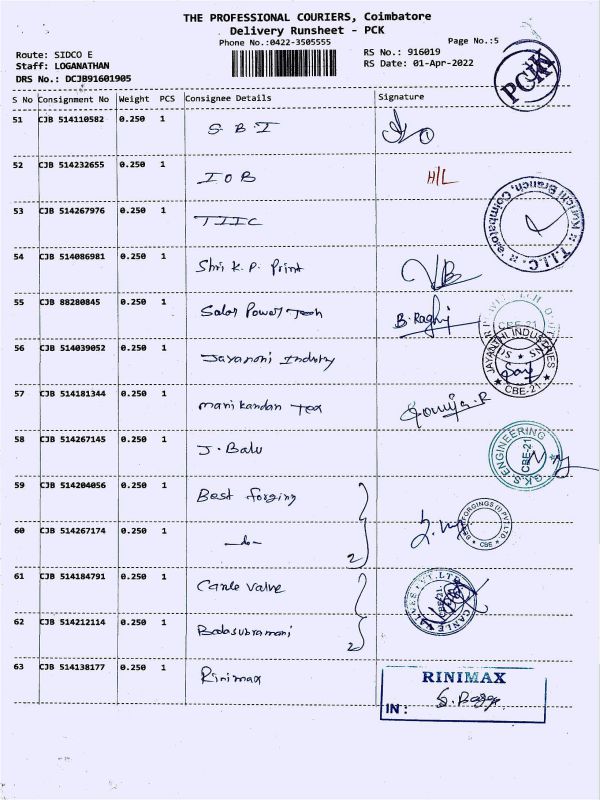 THE PROFESSIONAL COURIERS, Coimbatore
Delivery Runsheet - PCK
Phone No.:0422-3505555
Page No.:5
Route: SIDCO E
RS No.: 916019
Staff: LOGANATHAN
RS Date: 01-Apr-2022
DRS No.: DCJB91601905
PCK
S No Consignment No Weight PCS Consignee Details Signature
51 CJB 514110582 0.250 1 S.B.I
52 CJB 514232655 0.250 1 IOB H/L
53 CJB 514267976 0.250 1 TIIC
T.I.I.C. Kurichi Branch, Coimbatore
54 CJB 514086981 0.250 1 Shri K. P. Print
55 CJB 88280845 0.250 1 Salos Power Tech B. Raghi
CBE-21
56 CJB 514039052 0.250 1 Jayanthi Industry
JAYANTHI INDUSTRIES
CBE-21
57 CJB 514181344 0.250 1 Manikandan Tex Sowmiya.R
58 CJB 514267145 0.250 1 J. Balu
G.K.S. ENGINEERING
CBE-21
59 CJB 514204056 0.250 1 Best forging
60 CJB 514267174 0.250 1 -do- 2
BEST FORGINGS (I) PVT. LTD.
CBE
61 CJB 514184791 0.250 1 Canle Valve
CANLE VALVES PVT. LTD
62 CJB 514212114 0.250 1 Balasubramani 2
63 CJB 514138177 0.250 1 Rinimax
RINIMAX
IN :